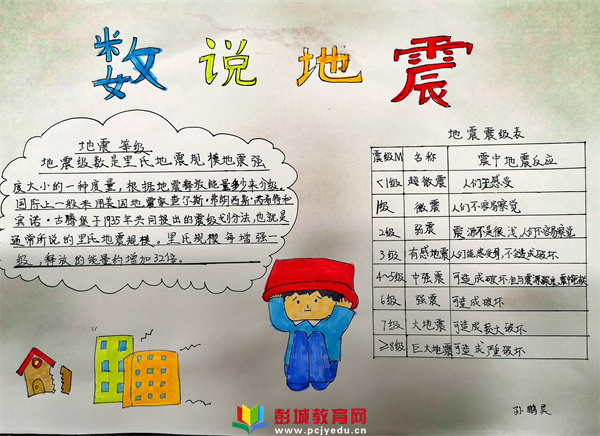 数说地震
地震等级
地震级数是里氏地震规模地震强
度大小的一种度量，根据地震释放能量多少来分级。
国际上一般采用美国地震学家查尔斯·弗朗西斯·芮希特和
宾诺·古腾堡于1935年共同提出的震级划分法，也就是
通常所说的里氏地震规模。里氏规模每增强一
级，释放的能量约增加32倍。
地震震级表
震级M 名称 震中地震反应
<1级 超微震 人们无感受
1级 微震 人们不容易察觉
2级 弱震 震源不是很浅，人们不容易察觉
3级 有感地震 人们能感受到，不会造成破坏
4~5级 中强震 可造成破坏 但与震源
6级 强震 可造成破坏
7级 大地震 可造成较大破坏
≥8级 巨大地震 可造成严重破坏
孙鹏昊
彭城教育网
www.pcjyedu.cn